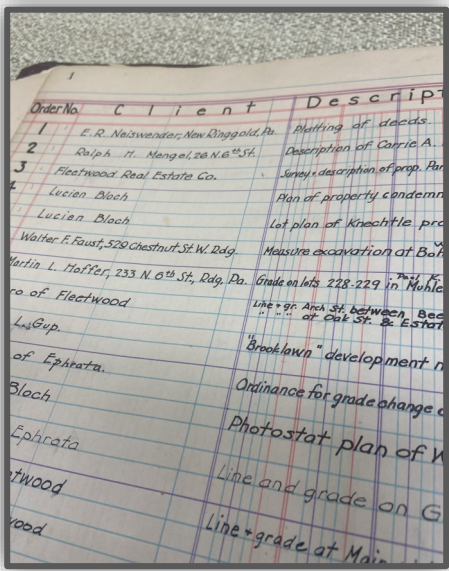 1
Order No. Client Descript
1 E.R. Neiswender, New Ringgold, Pa. Platting of deeds.
2 Ralph H. Mengel, 26 N. 6th St. Description of Carrie A.
3 Fleetwood Real Estate Co. Survey + description of prop. Par
Lucian Bloch Plan of property condemn
Lucian Bloch Lot plan of Knechtle pro
Walter F. Faust, 529 Chestnut St. W. Rdg. Measure excavation at Boh
Martin L. Hoffer, 233 N. 6th St., Rdg. Pa. Grade on lots 228-229 in Muhle
ro of Fleetwood Line + gr. Arch St. between Bee
" " " at Oak St. & Estat
L. Gup. "Brooklawn" development n
of Ephrata. Ordinance for grade change o
Bloch Photostat plan of W
Ephrata Line and grade on G
twood Line + grade at Main
wood